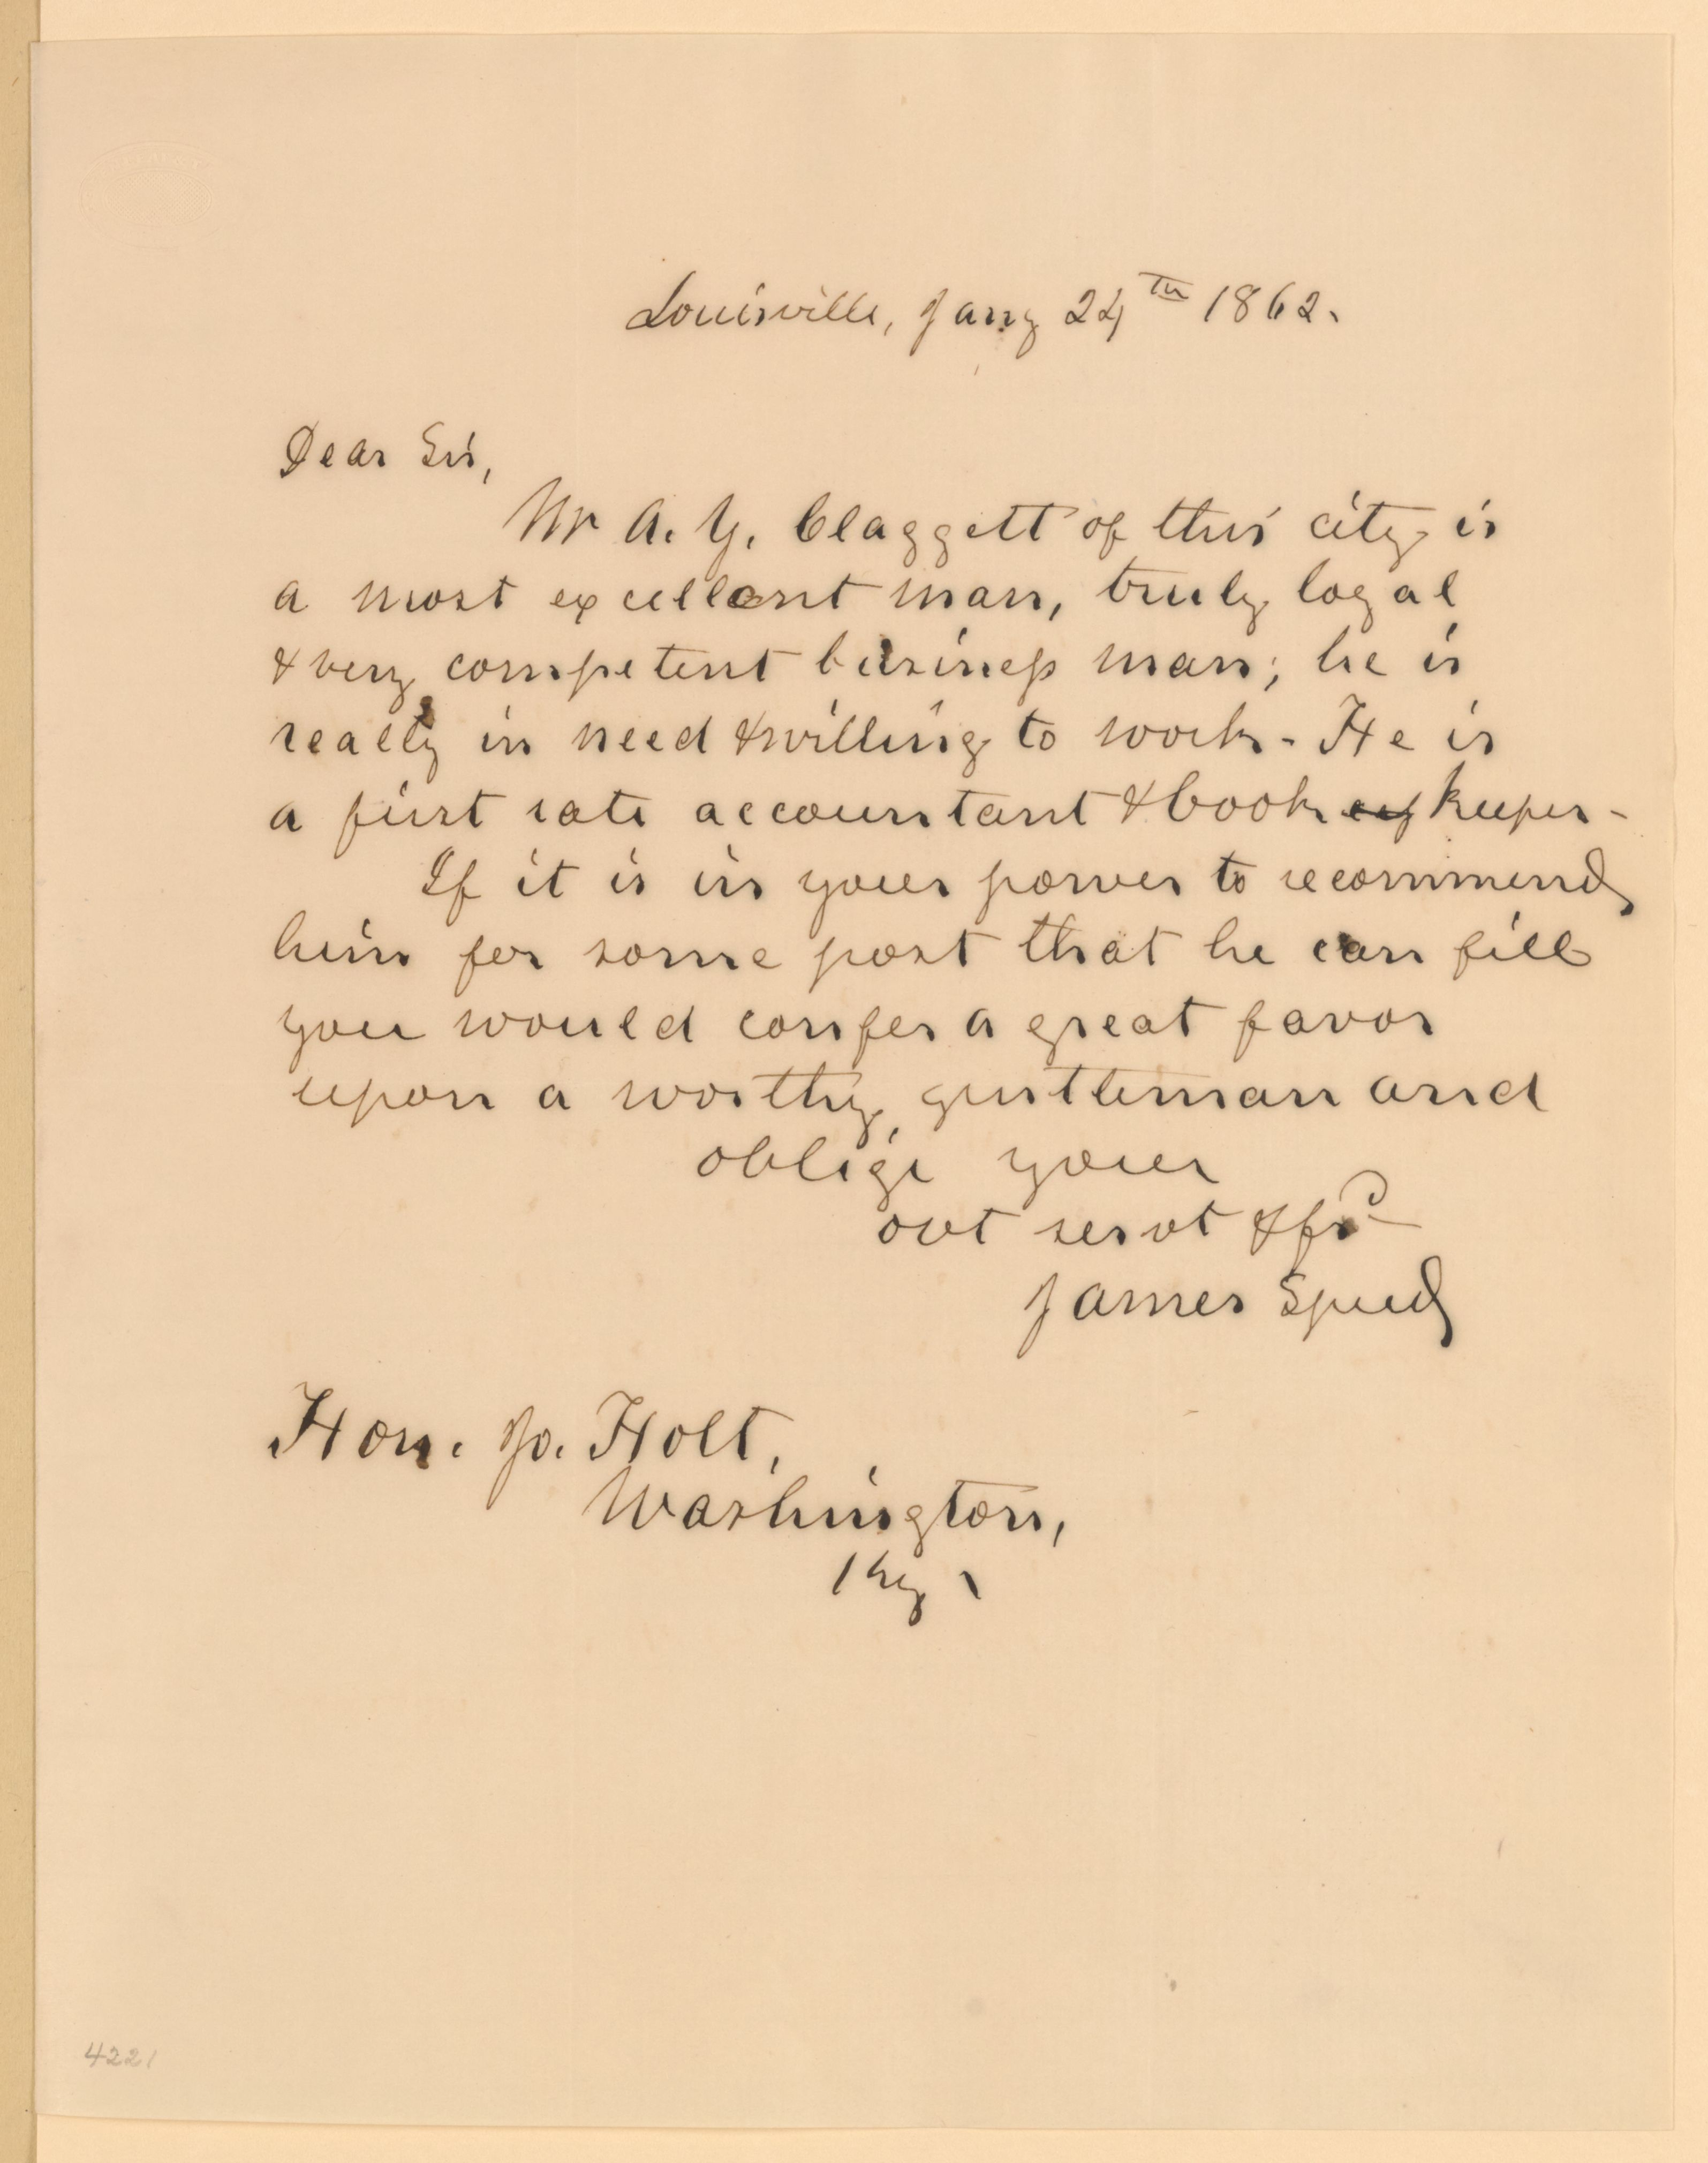 Louisville, Jany 24th 1862.
Dear Sir,
Mr A. Y. Claggett of this city is
a most excellent man, truly loyal
& very competent business man; he is
really in need & willing to work - He is
a first rate accountant & book keeper -
If it is in your power to recommend
him for some post that he can fill
you would confer a great favor
upon a worthy gentleman and
oblige your
obt servt & frd
James Speed
Hon. Jo. Holt,
Washington,
Ky.
4221